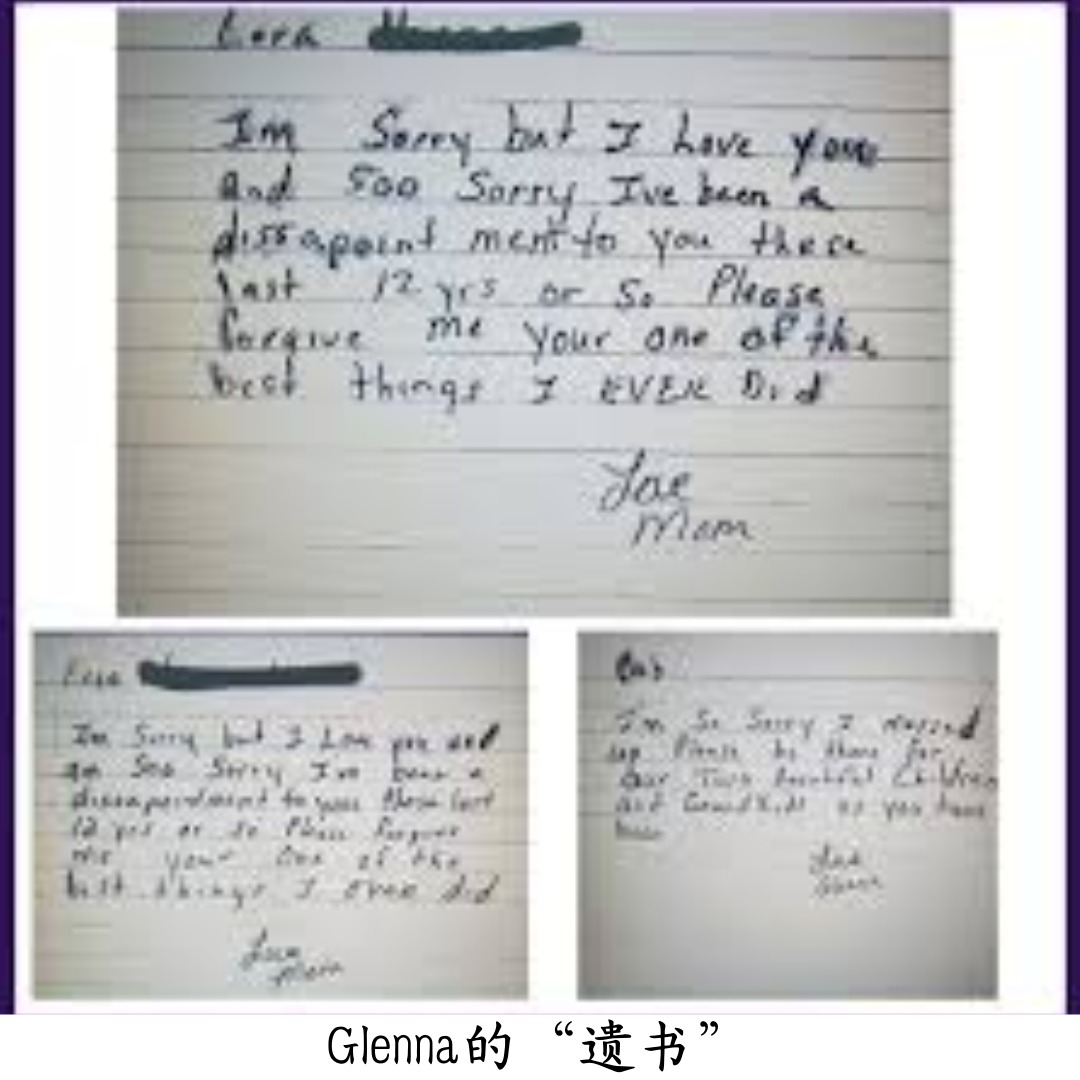 Lora
Im Sorry but I Love you
and Soo Sorry Ive been a
dissapoint ment to you these
last 12 yrs or so Please
forgive me your one of the
best things I EVER Did
Love
Mom
Im Sorry but I Love you and
am Soo Sorry Ive been a
dissapointment to you these last
12 yrs or so Please forgive
me your one of the
best things I ever did
Love
Mom
Bob
I'm So Sorry I messed
up Please be there for
our Two beautiful Children
and GrandKids as you have
been
Love
Glenna的“遗书”